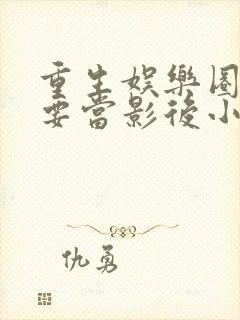 重生娱樂圈
要當影後小
仇勇